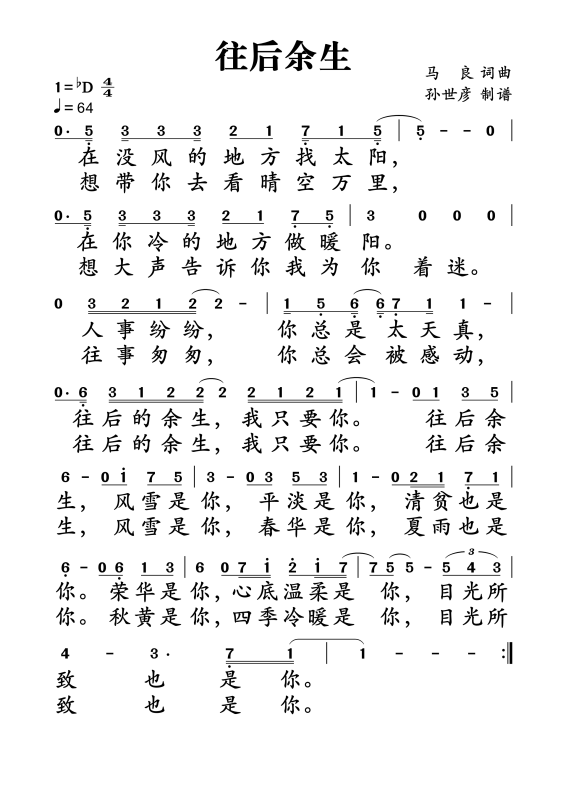 往后余生
1=♭D 4/4
♩=64
马 良 词曲
孙世彦 制谱
0· 5 3 3 3 2 1 7 1 5 | 5 - - 0 |
在没风的地方找太阳，
想带你去看晴空万里，
0· 5 3 3 3 2 1 7 5 | 3 0 0 0 |
在你冷的地方做暖阳。
想大声告诉你我为你着迷。
0 3 2 1 2 2 - | 1 5 6 6 7 1 1 - |
人事纷纷，你总是太天真，
往事匆匆，你总会被感动，
0· 6 3 1 2 2 2 2 1 2 1 | 1 - 0 1 3 5 |
往后的余生，我只要你。往后余
往后的余生，我只要你。往后余
6 - 0 i 7 5 | 3 - 0 3 5 3 | 1 - 0 2 1 7 1 |
生，风雪是你，平淡是你，清贫也是
生，风雪是你，春华是你，夏雨也是
6 - 0 6 1 3 | 6 0 7 i 2 i 7 | 7 5 5 - 5 4 3 |
3
你。荣华是你，心底温柔是你，目光所
你。秋黄是你，四季冷暖是你，目光所
4 - 3· 7 1 | 1 - - - :‖
致也是你。
致也是你。